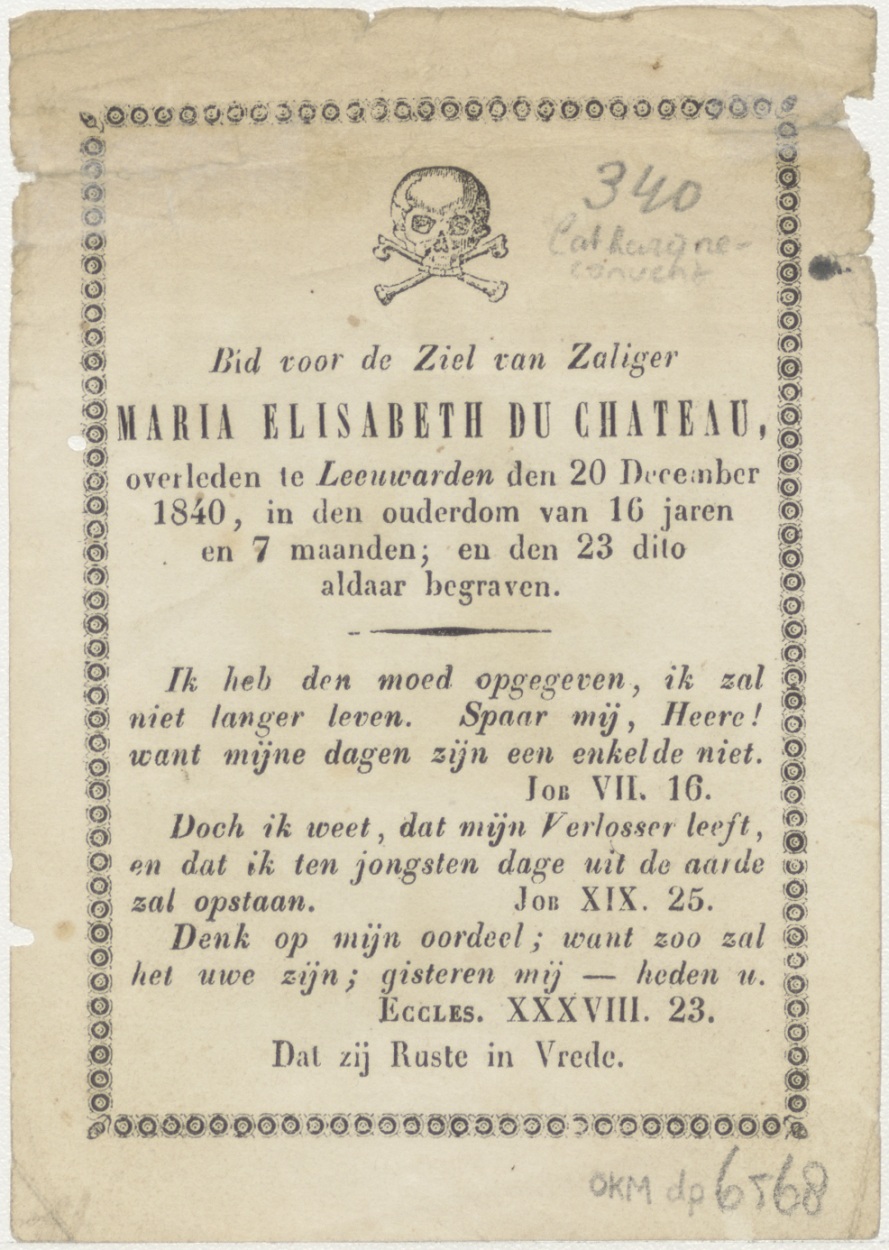 340
Catharijne-
convent
Bid voor de Ziel van Zaliger
MARIA ELISABETH DU CHATEAU,
overleden te Leeuwarden den 20 December
1840, in den ouderdom van 16 jaren
en 7 maanden; en den 23 dito
aldaar begraven.
Ik heb den moed opgegeven, ik zal
niet langer leven. Spaar mij, Heere!
want mijne dagen zijn een enkelde niet.
JOB VII. 16.
Doch ik weet, dat mijn Verlosser leeft,
en dat ik ten jongsten dage uit de aarde
zal opstaan. JOB XIX. 25.
Denk op mijn oordeel; want zoo zal
het uwe zijn; gisteren mij — heden u.
ECCLES. XXXVIII. 23.
Dat zij Ruste in Vrede.
OKM dp 6768